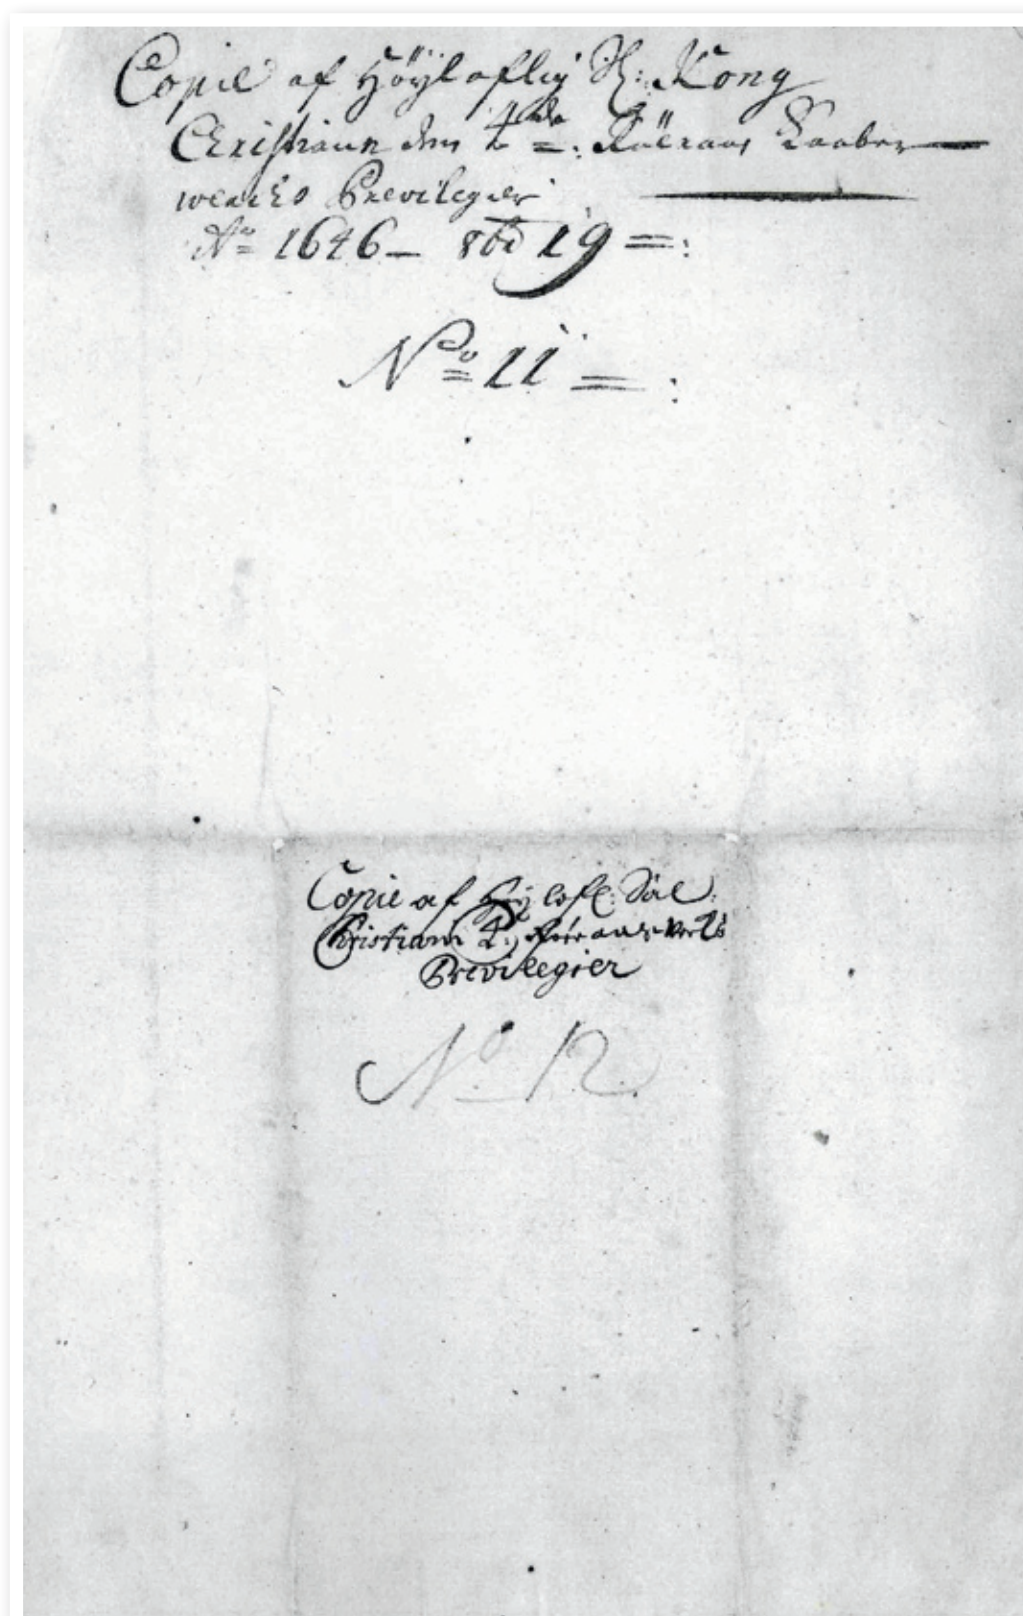 Copie af Höÿloflig S: Kong
Christiann den 4de =: Röeraas Kaaber
wercks Previlegier
Ao 1646 – 8bd 19 =:
No 11 = :
Copie af Höÿlofl: Sal:
Christiani 4: Röraas Vercks
Previlegier
No 12.